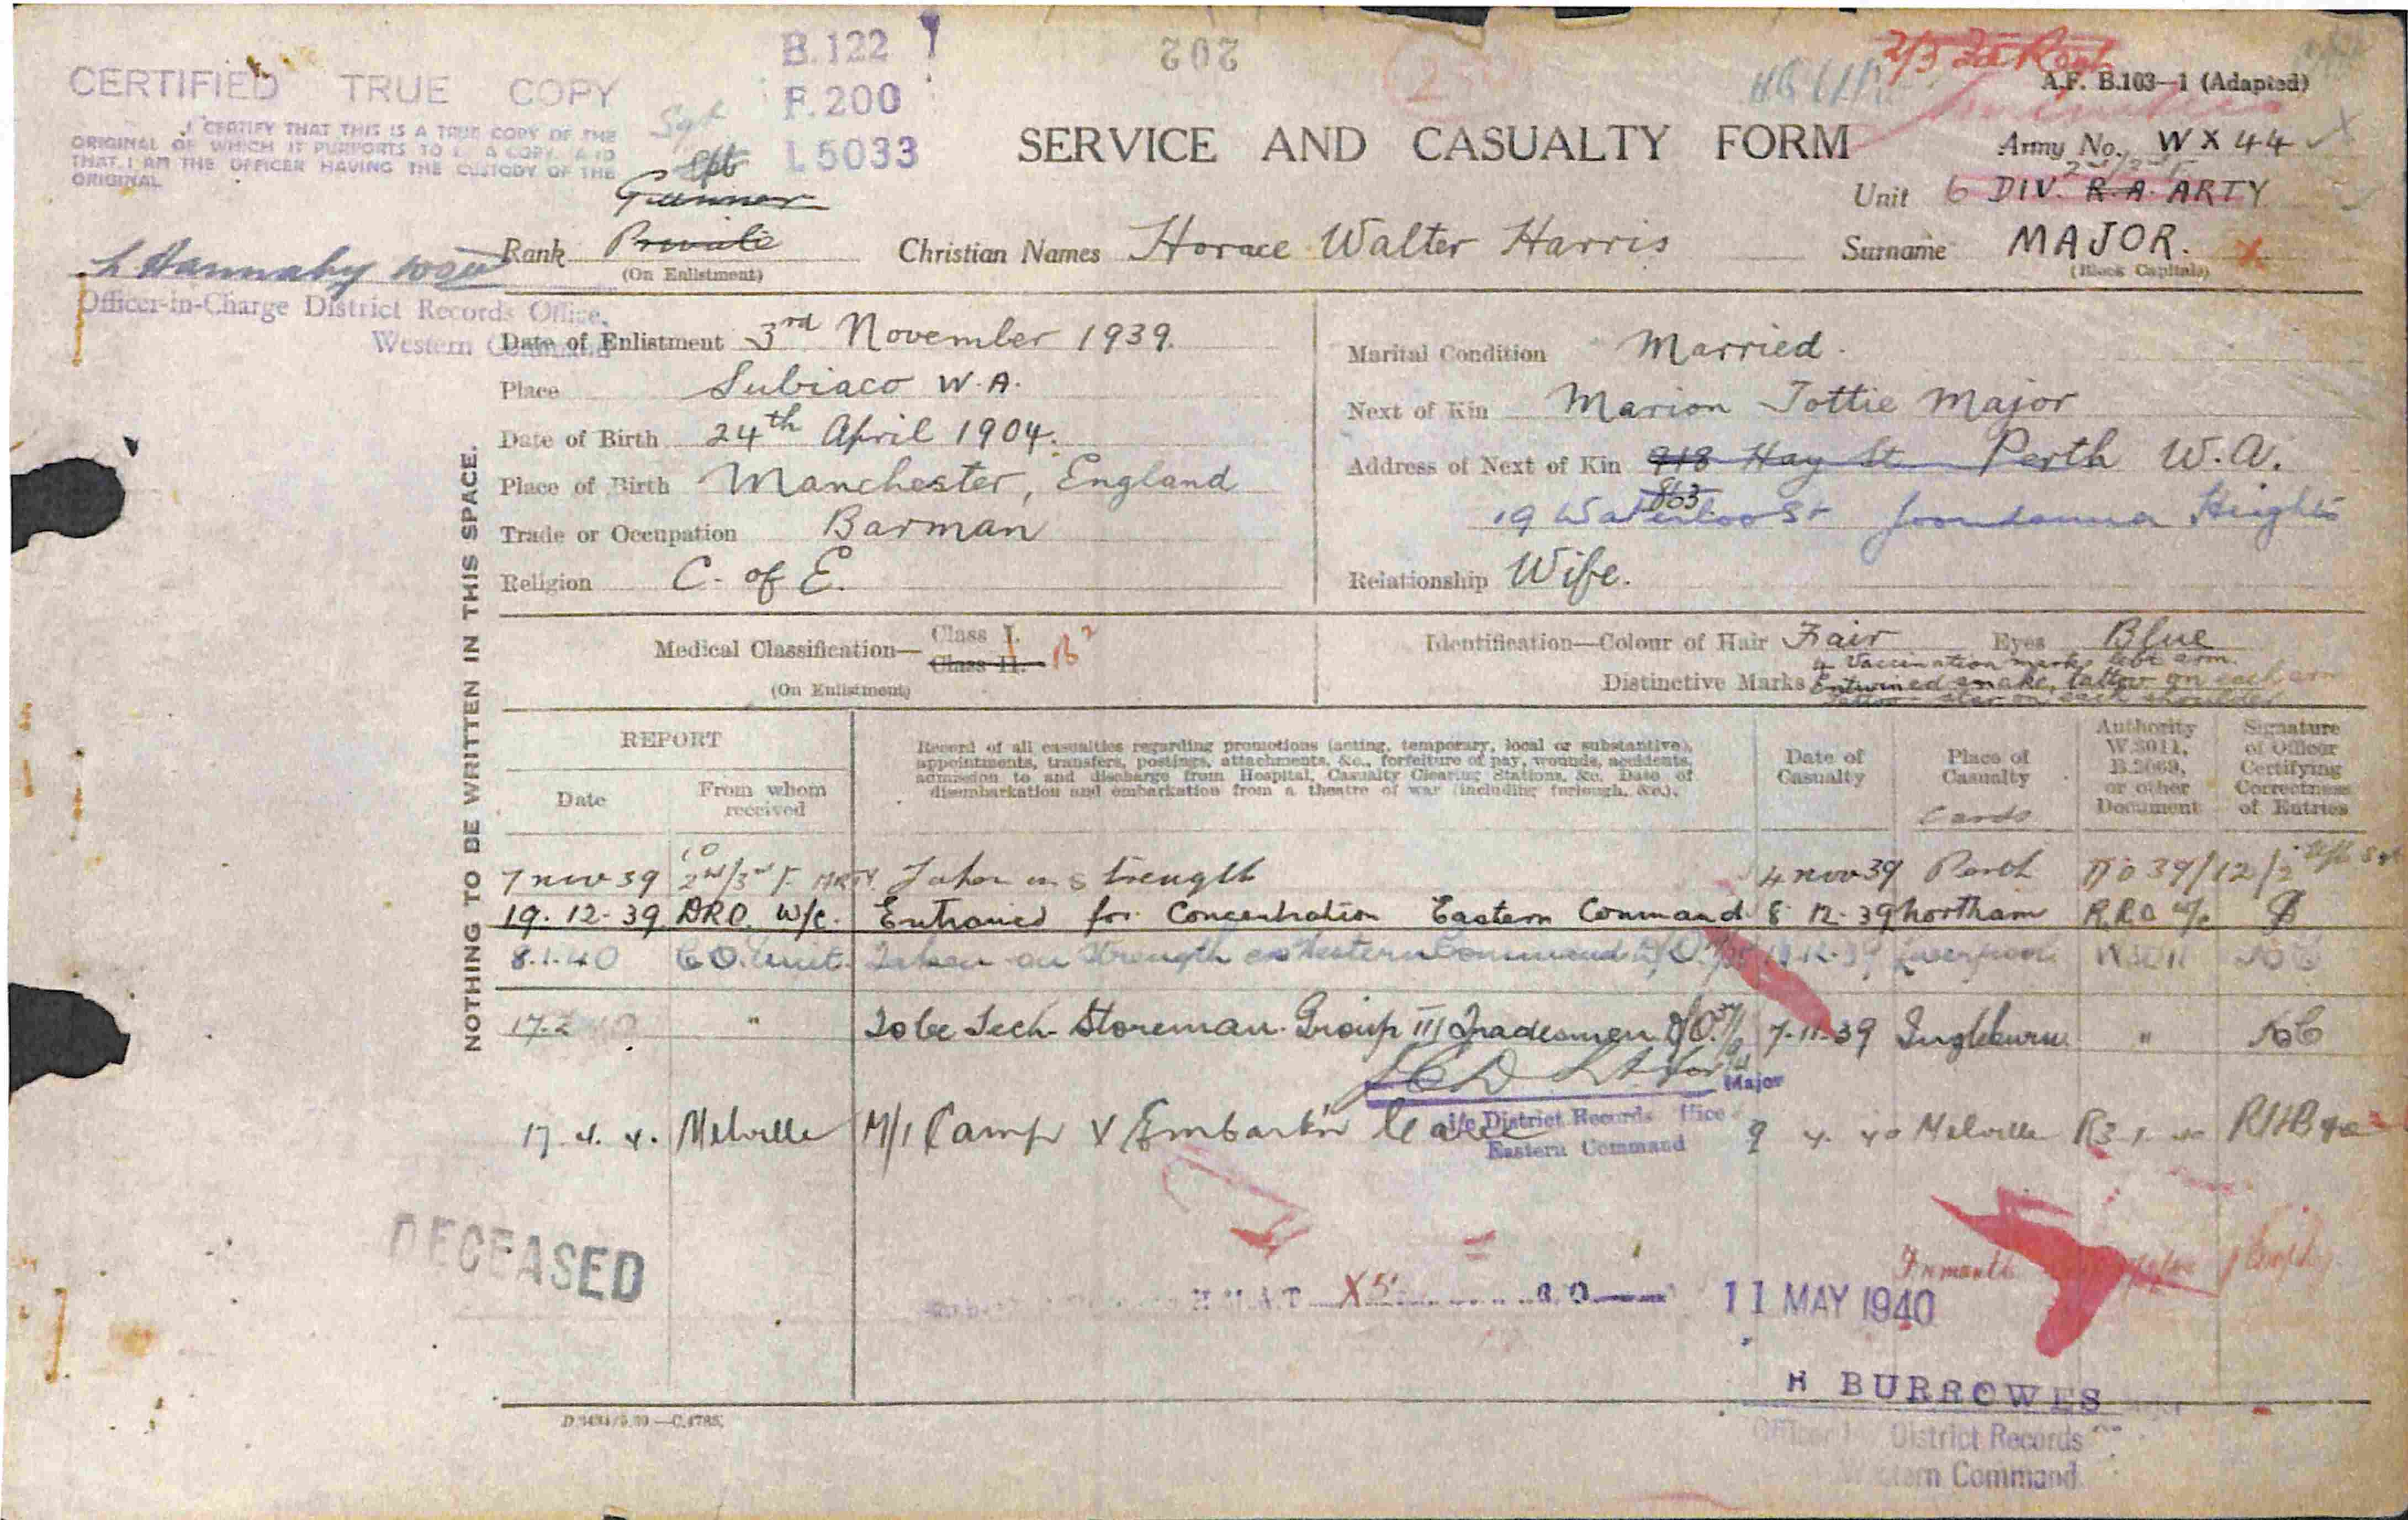 B.122
202
2/3 Fd Regt
CERTIFIED TRUE COPY
F.200
A.F. B.103—1 (Adapted)
I CERTIFY THAT THIS IS A TRUE COPY OF THE
ORIGINAL OF WHICH IT PURPORTS TO BE A COPY, AND
THAT I AM THE OFFICER HAVING THE CUSTODY OF THE
ORIGINAL
Sgt
L5033
SERVICE AND CASUALTY FORM
Army No. WX44
Gunner
Unit 6 DIV. R.A. ARTY
Rank Private
(On Enlistment)
Christian Names Horace Walter Harris
Surname MAJOR.
(Block Capitals)
Officer-in-Charge District Records Office,
Western Command
Date of Enlistment 3rd November 1939.
Marital Condition Married.
Place Subiaco W.A.
Next of Kin Marion Tottie Major
Date of Birth 24th April 1904.
Address of Next of Kin 918 Hay St Perth W.A.
863
Place of Birth Manchester, England
19 Waterloo St Joondanna Heights
Trade or Occupation Barman
Religion C. of E.
Relationship Wife.
NOTHING TO BE WRITTEN IN THIS SPACE.
Medical Classification— Class I.
Class II.
B2
(On Enlistment)
Identification—Colour of Hair Fair Eyes Blue
Distinctive Marks 4 Vaccination marks left arm.
Entwined snake, tattoo on each arm
Tattoo star on each shoulder
REPORT
Date
From whom received
Record of all casualties regarding promotions (acting, temporary, local or substantive),
appointments, transfers, postings, attachments, &c., forfeiture of pay, wounds, accidents,
admission to and discharge from Hospital, Casualty Clearing Stations, &c. Date of
disembarkation and embarkation from a theatre of war (including furlough, &c.).
Date of Casualty
Place of Casualty
Cards
Authority W.3011, B.2069, or other Document
Signature of Officer Certifying Correctness of Entries
7 Nov 39 CO 2nd/3rd F. ARTY Taken on Strength 4 Nov 39 Perth DO 39/12/2
19.12.39 DRO. W/C. Entrained for Concentration Eastern Command 8.12.39 Northam R.R.O W/C
8.1.40 C.O. Unit. Taken on Strength Eastern Command Liverpool
17.2.40 " To be Tech. Storeman Group III Tradesmen 7-11-39 Ingleburn "
Major
i/c District Records Office
Eastern Command
17.4.4. Melville M/I Camp Embark'n Leave 9 4 40 Melville
DECEASED
H.M.A.T. X5
11 MAY 1940
Fremantle
H BURROWES
District Records
Western Command